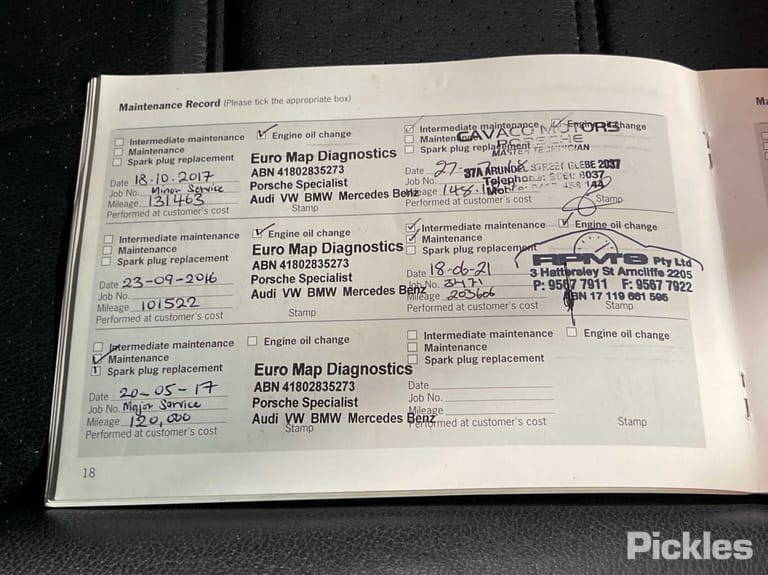 Maintenance Record (Please tick the appropriate box)
Intermediate maintenance
Engine oil change
Maintenance
Spark plug replacement
Date 18.10.2017
Job No. Minor Service
Mileage 131463
Performed at customer's cost
Euro Map Diagnostics
ABN 41802835273
Porsche Specialist
Audi VW BMW Mercedes Benz
Stamp
Intermediate maintenance
Engine oil change
Maintenance
Spark plug replacement
Date
Job No.
Mileage
Performed at customer's cost
CAVACO MOTORS
PORSCHE
MASTER TECHNICIAN
37A ARUNDEL STREET GLEBE 2037
Telephone:
Mobile:
Stamp
Intermediate maintenance
Engine oil change
Maintenance
Spark plug replacement
Date 23-09-2016
Job No.
Mileage 101522
Performed at customer's cost
Euro Map Diagnostics
ABN 41802835273
Porsche Specialist
Audi VW BMW Mercedes Benz
Stamp
Intermediate maintenance
Engine oil change
Maintenance
Spark plug replacement
Date 18-06-21
Job No. 3471
Mileage 203606
Performed at customer's cost
RPMS Pty Ltd
3 Hattersley St Arncliffe 2205
P: 9567 7911 F: 9567 7922
ABN 17 119 661 595
Stamp
Intermediate maintenance
Engine oil change
Maintenance
Spark plug replacement
Date 20-05-17
Job No. Major Service
Mileage 120,000
Performed at customer's cost
Euro Map Diagnostics
ABN 41802835273
Porsche Specialist
Audi VW BMW Mercedes Benz
Stamp
Intermediate maintenance
Engine oil change
Maintenance
Spark plug replacement
Date
Job No.
Mileage
Performed at customer's cost
Stamp
18
Ma
Pickles